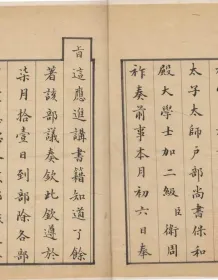 太子太師戶部尚書保和
殿大學士加二級臣衛周
祚奏前事本月初六日奉
旨這應進講書籍知道了餘
著該部議奏欽此欽遵於
柒月拾壹日到部除各部